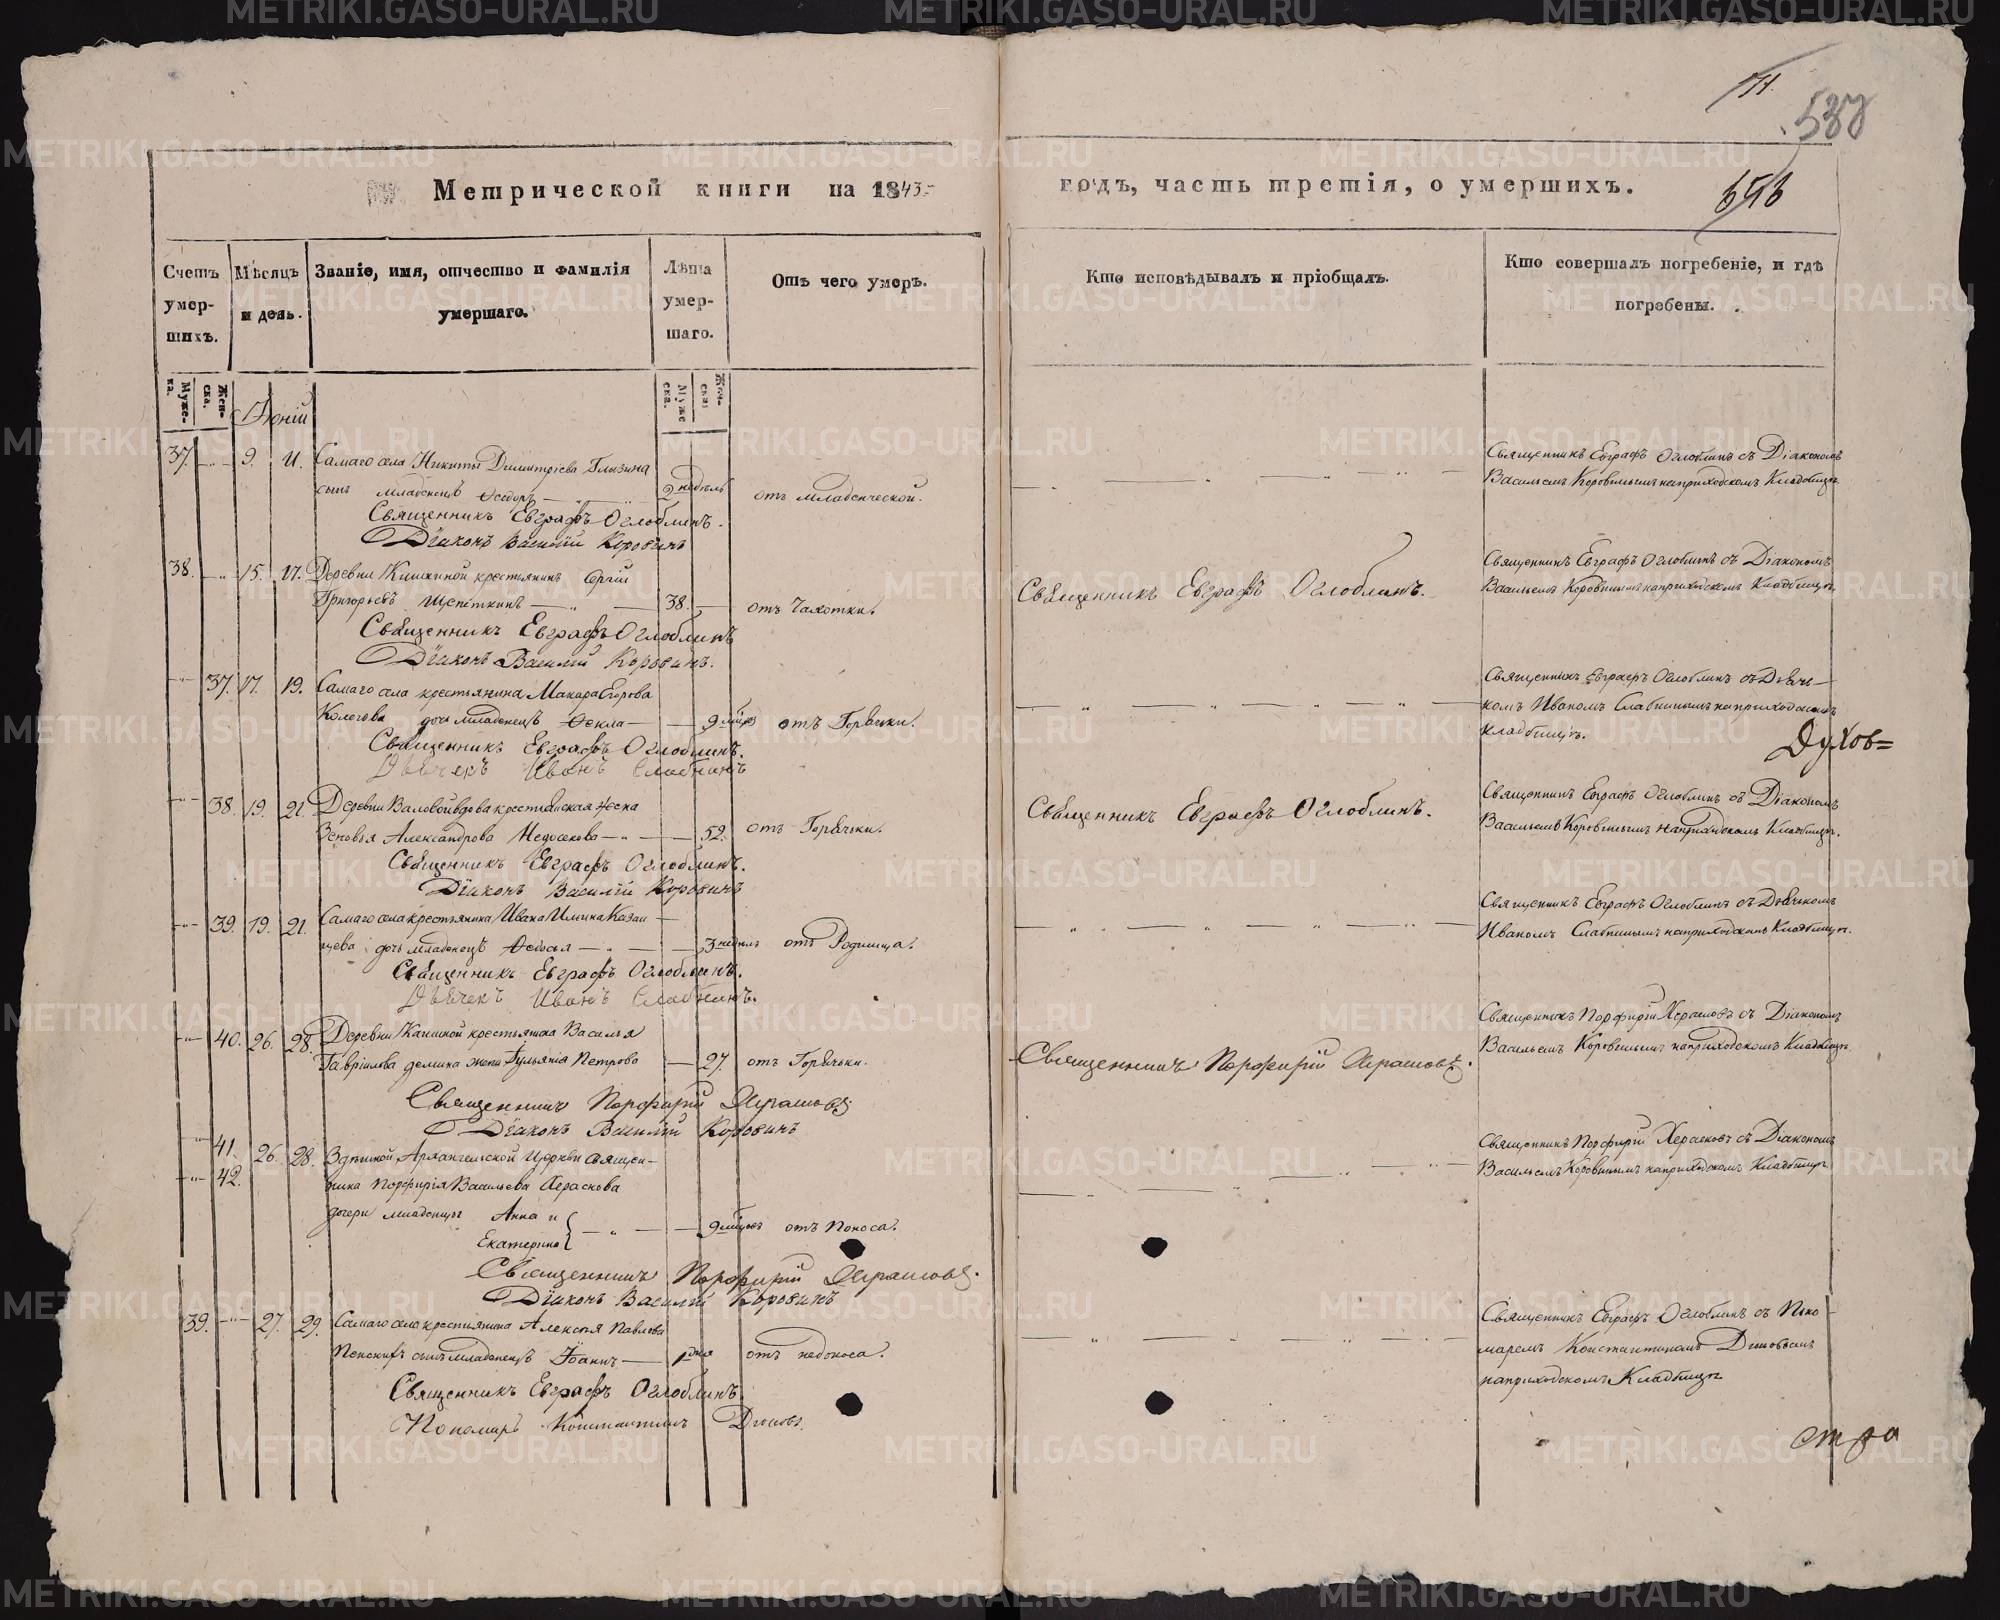 Метрической книги на 1843
годъ, часть третія, о умершихъ.
Счетъ умер-шихъ.
Мѣсяцъ и день.
Званіе, имя, отчество и фамилія умершаго.
Лѣта умер-шаго.
Отъ чего умеръ.
Кто исповѣдывалъ и пріобщалъ.
Кто совершалъ погребеніе, и гдѣ погребены.
Муже-ка. Жен-ска.
Іюній
37. 9. 11. Самаго села Никиты Димитріева Глызина
сынъ младенецъ Ѳеодоръ 2 недѣль отъ младенческой.
Священникъ Евграфъ Оглоблинъ.
Діаконъ Василій Коровинъ
Священникъ Евграфъ Оглоблинъ съ Діакономъ
Васильемъ Коровинымъ на приходскомъ Кладбищѣ.
38. 15. 17. Деревни Кишкиной крестьянинъ Сергій
Григорьевъ Щепеткинъ 38. отъ Чахотки.
Священникъ Евграфъ Оглоблинъ
Діаконъ Василій Коровинъ.
Священникъ Евграфъ Оглоблинъ.
Священникъ Евграфъ Оглоблинъ съ Діакономъ
Васильемъ Коровинымъ на приходскомъ Кладбищѣ.
37. 17. 19. Самаго села крестьянина Макара Егорова
дочь младенецъ Ѳекла 9 мѣсяцовъ отъ Горячки.
Священникъ Евграфъ Оглоблинъ.
Дьячекъ Иванъ Слабнинъ
Священникъ Евграфъ Оглоблинъ съ Дьяч-
комъ Иваномъ Слабнинымъ на приходскомъ
кладбищѣ.
Духов=
38. 19. 21. Деревни Валовой вдова крестьянская жена
Зеновья Александрова Недосекова 52. отъ Горячки.
Священникъ Евграфъ Оглоблинъ.
Діаконъ Василій Коровинъ
Священникъ Евграфъ Оглоблинъ.
Священникъ Евграфъ Оглоблинъ съ Діакономъ
Васильемъ Коровинымъ на приходскомъ Кладбищѣ.
39. 19. 21. Самаго села крестьянина Ивана Ильина Казан
цева дочь младенецъ Ѳедосья 3 недѣль отъ Родимца.
Священникъ Евграфъ Оглоблинъ.
Дьячекъ Иванъ Слабнинъ.
Священникъ Евграфъ Оглоблинъ съ Дьячкомъ
Иваномъ Слабнинымъ на приходскомъ Кладбищѣ.
40. 26. 28. Деревни крестьянина Василья
Гавріилова жена Гульянія Петрова 27. отъ Горячки.
Священникъ Порфирій Херасковъ
Діаконъ Василій Коровинъ
Священникъ Порфирій Херасковъ.
Священникъ Порфирій Херасковъ съ Діакономъ
Васильемъ Коровинымъ на приходскомъ Кладбищѣ
41. 26. 28. Здѣшной Архангельской Церкви священ-
42. ника Порфирія Васильева Хераскова
дочери младенцы Анна и
Екатерина 9 мѣсяцовъ отъ Поноса.
Священникъ Порфирій Херасковъ.
Діаконъ Василій Коровинъ
Священникъ Порфирій Херасковъ съ Діакономъ
Васильемъ Коровинымъ на приходскомъ Кладбищѣ
39. 27. 29. Самаго села крестьянина Алексѣя Павлова
сынъ младенецъ Іоаннъ 1 дня отъ недоноса.
Священникъ Евграфъ Оглоблинъ.
Пономарь Константинъ
Священникъ Евграфъ Оглоблинъ съ Поно-
маремъ Константиномъ
на приходскомъ Кладбищѣ
стра
METRIKI.GASO-URAL.RU